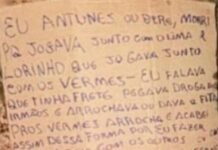 EU ANTUNES OU BERG, MORRI
PQ JOGAVA JUNTO COM O LIMA E
LORINHO QUE JOGAVA JUNTO
COM OS VERMES - EU FALAVA
QUE TINHA FRETE PEGAVA DROGA
IRMÃOS E ARROCHAVA OU DAVA A FITA
PROS VERMES ARROCHA E ACABEI
ASSIM DESSA FORMA POR EU FAZER
COM OS OUTROS